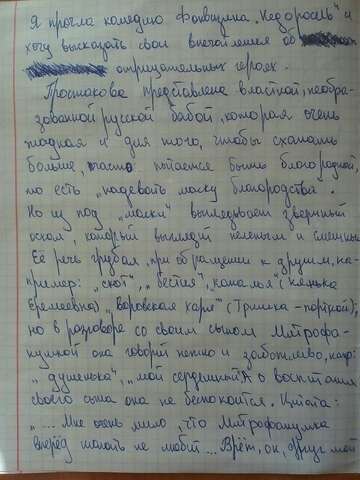 Я прочла комедию Фонвизина „Недоросль" и
хочу высказать свои впечатления об
отрицательных героях.
Простакова представлена властной, необра-
зованной русской бабой, которая очень
жадная и для того, чтобы схватить
больше, часто пытается быть благородной,
то есть „надевать маску благородства".
Но из под „маски" выглядывает звериный
оскал, который выглядит нелепым и смешным.
Её речь грубая, при обращении к другим, на-
пример: „скот", „бестия", каналья" (нянька
Еремеевна) „Воровская харя" (Тришка - портной);
но в разговоре со своим сыном Митрофа-
нушкой она говорит нежно и заботливо, напр:
„душенька", „мой сердешный" А о воспитании
своего сына она не беспокоится. Цитата:
„... Мне очень мило, что Митрофанушка
вперёд шагать не любит... Врёт, он, друг мой